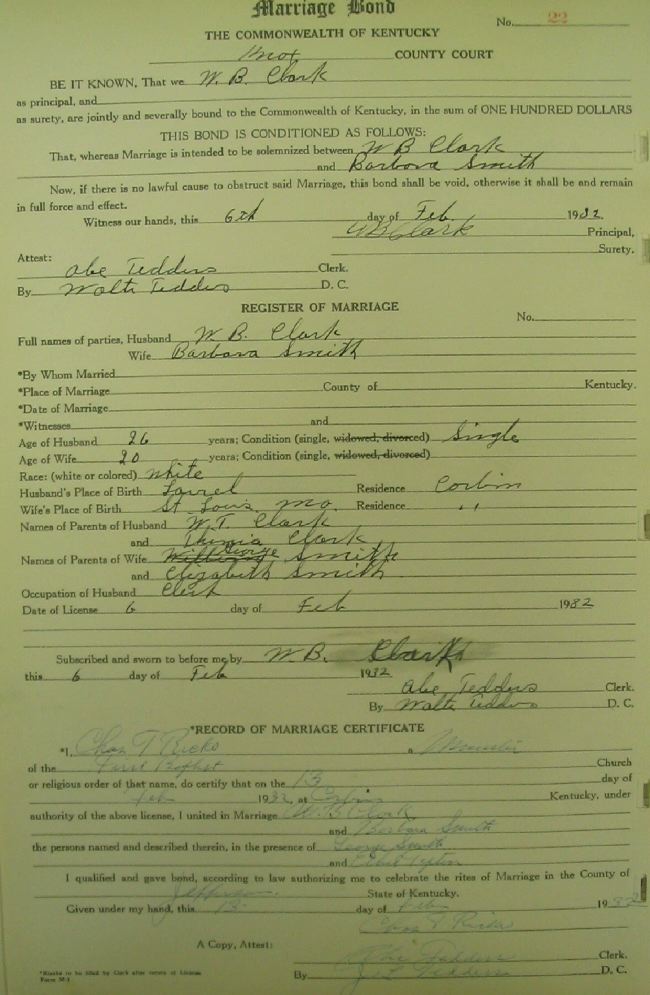 Marriage Bond
No. 22
THE COMMONWEALTH OF KENTUCKY
Knox COUNTY COURT
BE IT KNOWN, That we W. B. Clark
as principal, and
as surety, are jointly and severally bound to the Commonwealth of Kentucky, in the sum of ONE HUNDRED DOLLARS
THIS BOND IS CONDITIONED AS FOLLOWS:
That, whereas Marriage is intended to be solemnized between W B Clark
and Barbara Smith
Now, if there is no lawful cause to obstruct said Marriage, this bond shall be void, otherwise it shall be and remain
in full force and effect.
Witness our hands, this 6th day of Feb. 1932.
W B Clark Principal,
Surety.
Attest:
Abe Tedders Clerk.
By Walte Tedders D. C.
REGISTER OF MARRIAGE
No.
Full names of parties, Husband W. B. Clark
Wife Barbara Smith
*By Whom Married
*Place of Marriage County of Kentucky.
*Date of Marriage
*Witnesses and
Age of Husband 26 years; Condition (single, widowed, divorced) Single
Age of Wife 20 years; Condition (single, widowed, divorced)
Race: (white or colored) white
Husband's Place of Birth Laurel Residence Corbin
Wife's Place of Birth St Louis Mo. Residence "
Names of Parents of Husband W. T. Clark
and Clark
Names of Parents of Wife George Smith
and Elizabeth Smith
Occupation of Husband Clerk
Date of License 6 day of Feb 1932
Subscribed and sworn to before me by W. B. Clark
this 6 day of Feb 1932
Abe Tedders Clerk.
By Walte Tedders D. C.
*RECORD OF MARRIAGE CERTIFICATE
*I, Chas T Ricks a Minister
of the First Baptist Church
or religious order of that name, do certify that on the 13 day of
Feb 1932, at Corbin Kentucky, under
authority of the above license, I united in Marriage W. B Clark
and Barbara Smith
the persons named and described therein, in the presence of George Smith
and Ethel
I qualified and gave bond, according to law authorizing me to celebrate the rites of Marriage in the County of
Jefferson State of Kentucky.
Given under my hand, this 13 day of Feb 1932
Chas T Ricks
A Copy, Attest:
Abe Tedders Clerk.
By Tedders D. C.
*Blanks to be filled by Clerk after return of License
Form M-1